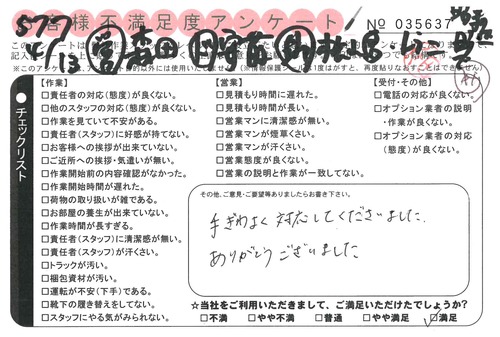 577
お客様不満足度アンケート
NO 035637
4/13 ㊞営 森田
チェックリスト
【作業】
□責任者の対応(態度)が良くない。
□他のスタッフの対応(態度)が良くない。
□作業を見ていて不安がある。
□責任者(スタッフ)に好感が持てない。
□お客様への挨拶が出来ていない。
□ご近所への挨拶・気遣いが無い。
□作業開始前の内容確認がなかった。
□作業開始時間が遅れた。
□荷物の取り扱いが雑である。
□お部屋の養生が出来ていない。
□作業時間が長すぎる。
□責任者(スタッフ)に清潔感が無い。
□責任者(スタッフ)が汗くさい。
□トラックが汚い。
□梱包資材が汚い。
□運転が不安(下手)である。
□靴下の履き替えをしてない。
□スタッフにやる気がみられない。
【営業】
□見積もり時間に遅れた。
□見積もり時間が長い。
□営業マンに清潔感が無い。
□営業マンが煙草くさい。
□営業マンが汗くさい。
□営業態度が良くない。
□営業の説明と作業が一致してない。
【受付・その他】
□電話の対応が良くない。
□オプション業者の説明
・作業が良くない。
□オプション業者の対応
(態度)が良くない。
その他、ご意見・ご要望等ありましたらお書き下さい。
手ぎわよく対応してくださいました。
ありがとうございました
☆当社をご利用いただきまして、ご満足いただけたでしょうか?
□不満 □やや不満 □普通 □やや満足 □満足